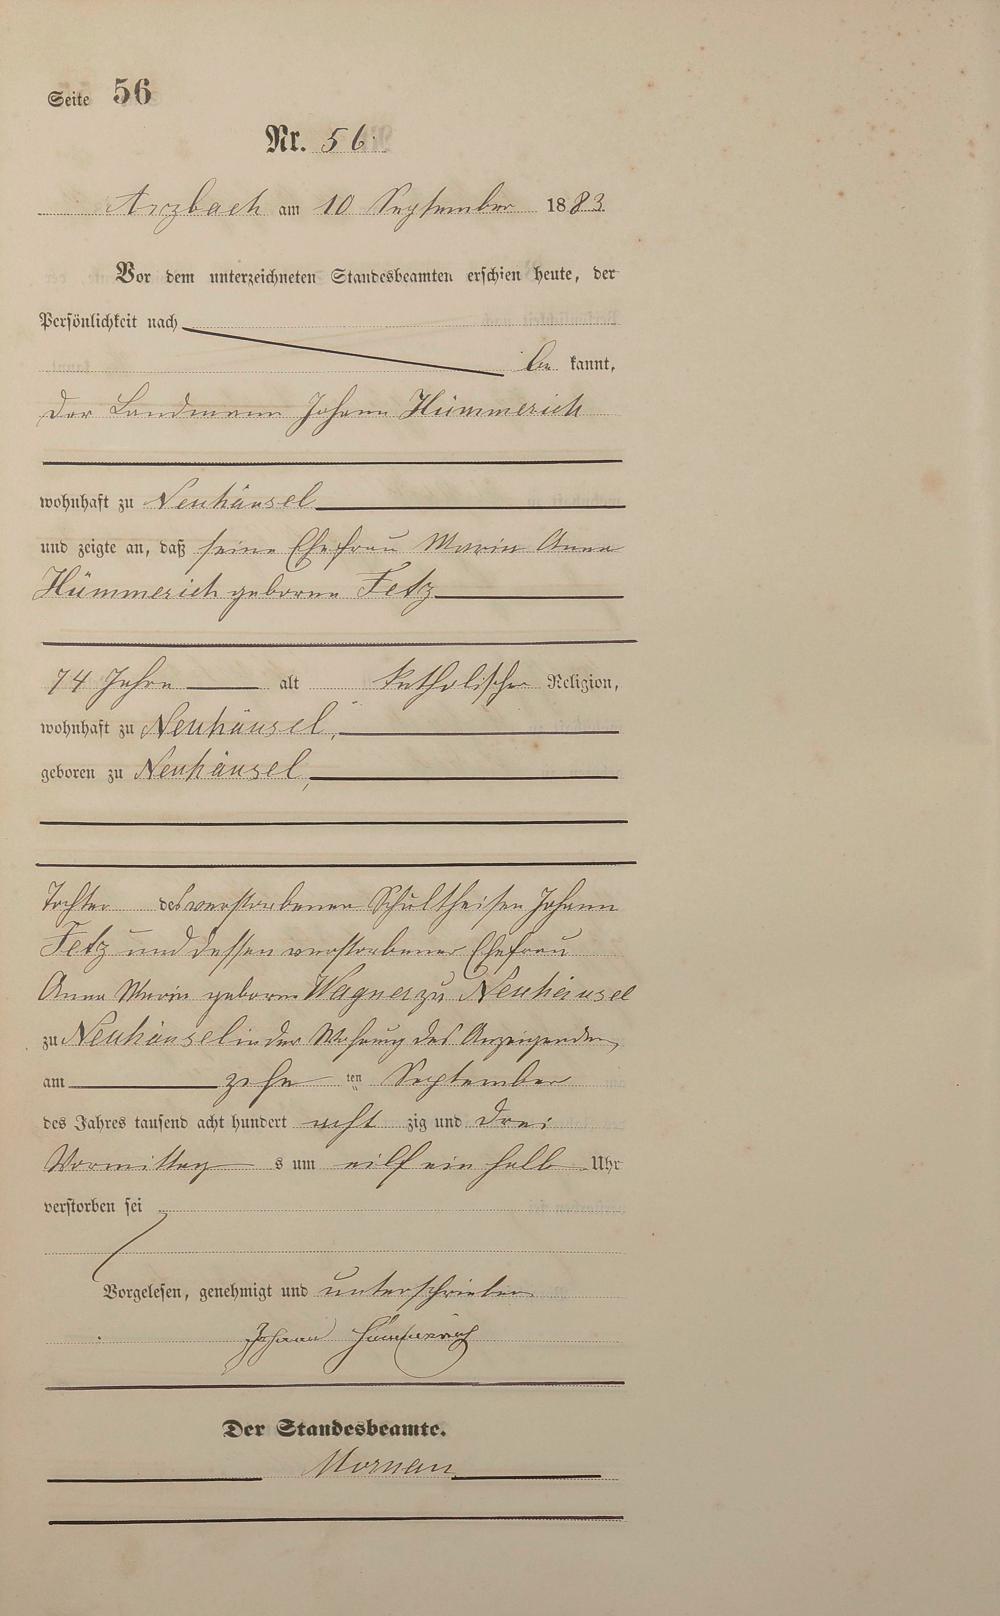 Seite 56
Nr. 56.
Arzbach am 10 September 1883
Vor dem unterzeichneten Standesbeamten erschien heute, der
Persönlichkeit nach
be kannt,
der Landmann Johann Hümmerich
wohnhaft zu Neuhäusel
und zeigte an, daß seine Ehefrau Maria Anna
Hümmerich geborne Fetz
74 Jahre alt katholischer Religion,
wohnhaft zu Neuhäusel,
geboren zu Neuhäusel,
Tochter des verstorbenen Schultheisen Johann
Fetz und dessen verstorbener Ehefrau
Anna Maria geborne Wagner zu Neuhäusel
zu Neuhäusel in der Wohnung des Anzeigenden
am zehn ten September
des Jahres tausend acht hundert acht zig und drei
Vormittag s um eilf ein halb Uhr
verstorben sei
Vorgelesen, genehmigt und unterschrieben
Johann Hümmerich
Der Standesbeamte.